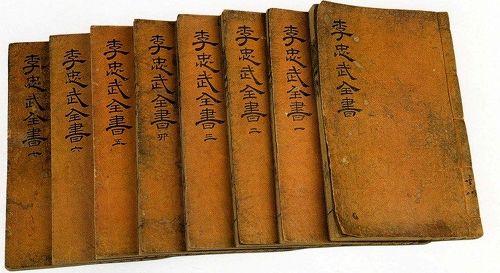 李忠武全書
李忠武全書 一
李忠武全書 二
李忠武全書 三
李忠武全書
李忠武全書 五
李忠武全書 六
李忠武全書